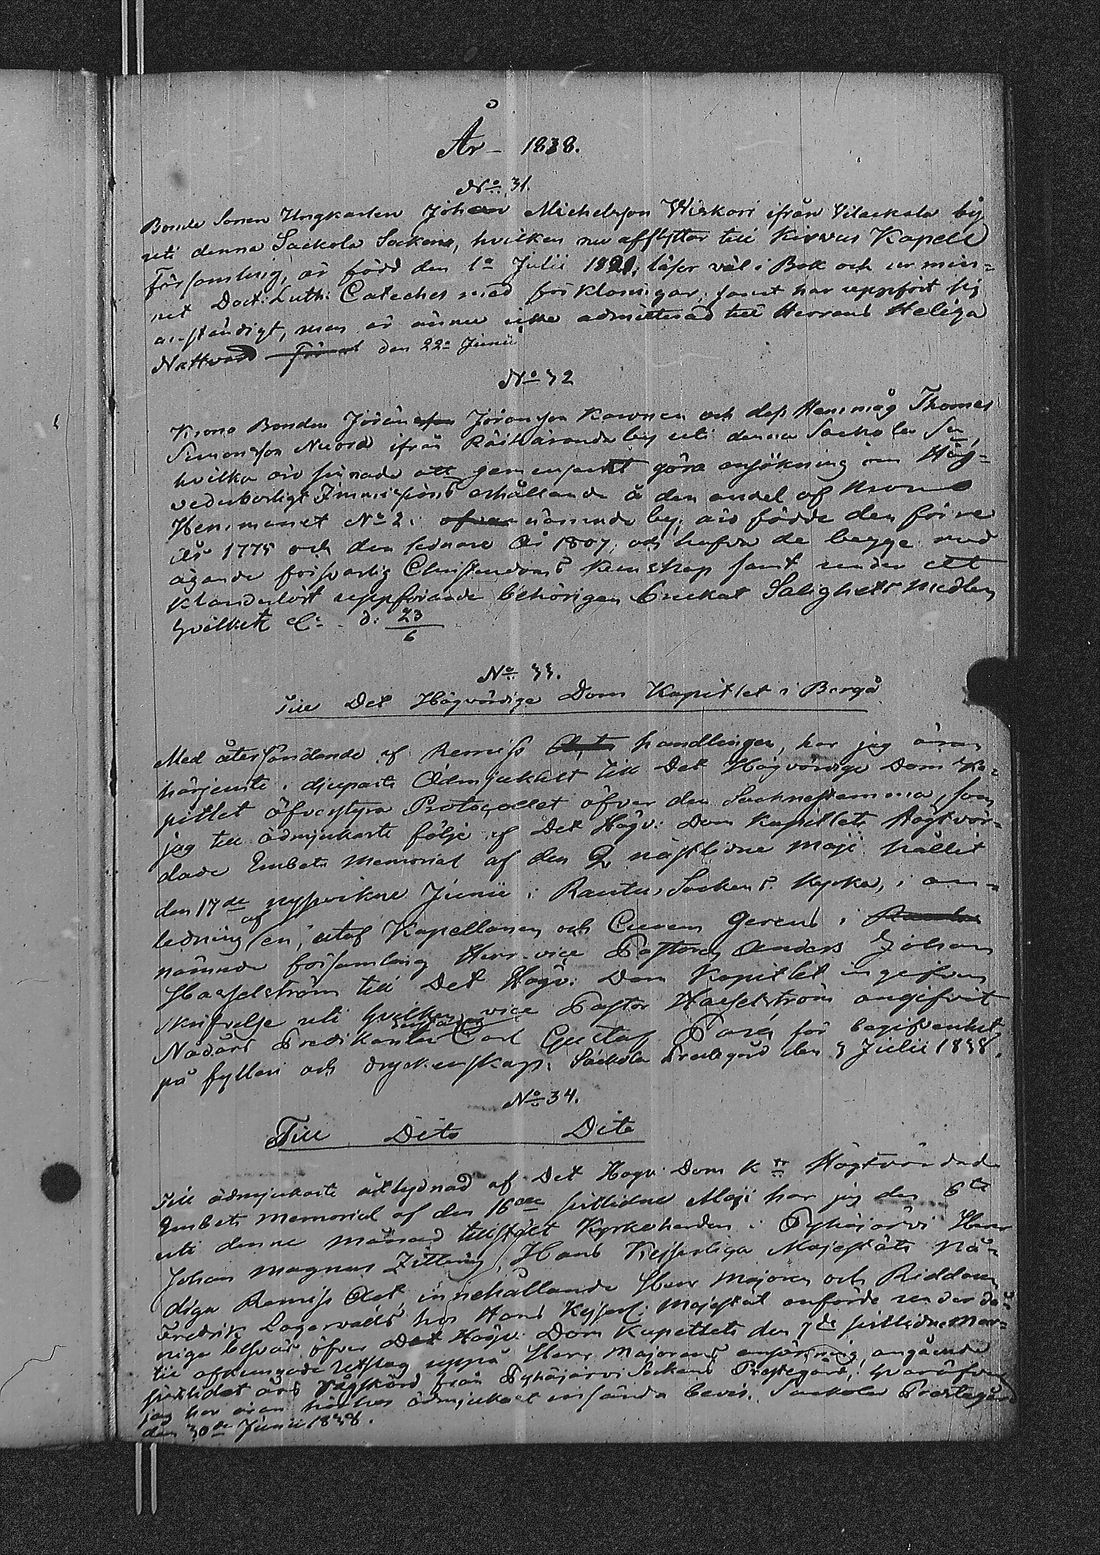 År 1838.
No 31.
Bonde Sonen Ungkarlen Johan Michelsson Wiskari ifrån Vilackala by
uti denna Sackola Socken, hvilken nu afflyttar till Kivvus Kapell
Församling, är född den 1a Julii 1820, läser väl i Bok och ur min=
net Doct: Luth: Cateches med förklaringar, samt har uppfört sig
anständigt, men är ännu icke admitterad till Herrans Heliga
Nattvard den 22a Junii
No 32
Krono Bonden Jöran Jöransson Kawonen och dess Hemmåg Thomas
Simonsson Nuora ifrån by uti denna Sackola Sn,
hvilka äro sinnade att gemensamt göra ansökning om Hög=
vederborligt Immissions erhållande å den andel af Krono
Hemmanet No 2 i nämnde by, äro födde den förre
år 1775 och den sednare år 1807, och hafva de begge med
ägande försvarlig Christendoms kunskap samt under ett
klanderlöst uppförande behörigen brukat Salighets medlen
hvilket &c. d: 23/6
No 33.
Till Det Högvördige Dom Kapitlet i Borgå
Med återsändande af Remiss handlingen, har jag äran
härjemte i djupaste Ödmjukhet till Det Högvördige Dom Ka=
pitlet öfverstyra Protocollet öfver den Sockenstemma, som
jag till ödmjukaste följe af Det Högv: Dom Kapitlets Högtvör=
dade Embets Memorial af den 2 nästlidne Maji hållit
den 17de nyssvikne Junii i Rautu Sockens Kyrka, i an=
ledning af en, utaf Kapellanen och Curam Gerens i
nämnde församling Herr vice Pastoren Anders Johan
Hasselström till Det Högv: Dom Kapitlet ingifven
skrifvelse uti hvilken vice Pastor Hasselström angifvit
Nådårs Predikanten Carl Gustaf för begifvenhet
på fylleri och dryckenskap. Sackola Prestegård den 3 Julii 1838.
No 34.
Till Dito Dito
Till ödmjukaste åtlydnad af Det Högv: Dom K:tts Högtvördade
Embets Memorial af den 16de sistlidne Maji har jag den 6te
uti denne månad tillstält Kyrkoherden i Pyhäjärvi Herr
Johan Magnus Zitting, Hans Kejserliga Majestäts Nå=
diga Remiss Act innehållande Herr Majoren och Riddaren
Fredrik Lagervalls hos Hans Kejserl: Majestät anförde under då=
nige besvär öfver Det Högv: Dom Kapitlets den 7de sistlidne Mar=
tii afkunnade Utslag uppå Herr Majorens anförning, angående
från Pyhäjärvi Sockens Prestegård, hvaröfver
jag har äran härhos ödmjukast insända bevis. Sackola Prestegård
den 30de Junii 1838.